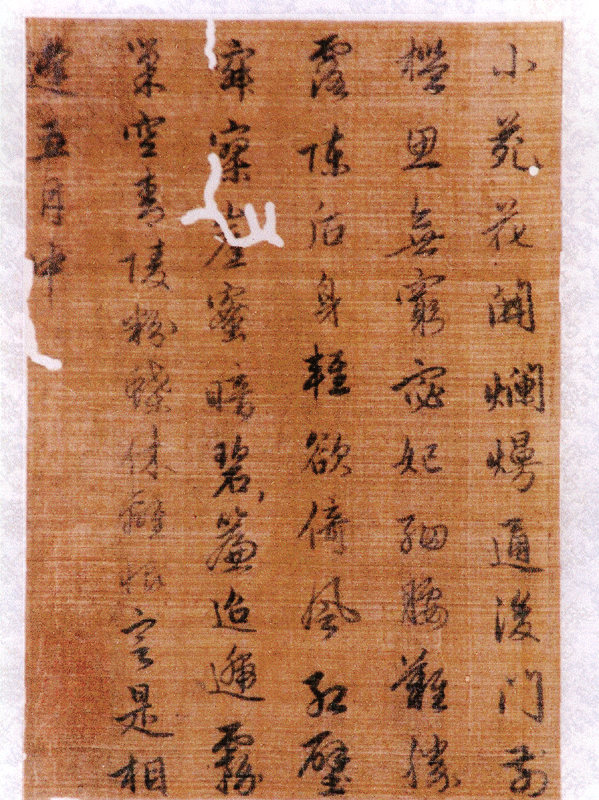 小苑花開爛熳通後門前
檻思無窮宓妃細腰難勝
露陳后身輕欲倚風紅壁
寂寥崖蜜暗碧簾迢遞霧
巢空青陵粉蝶休離恨定是相
逢五月中